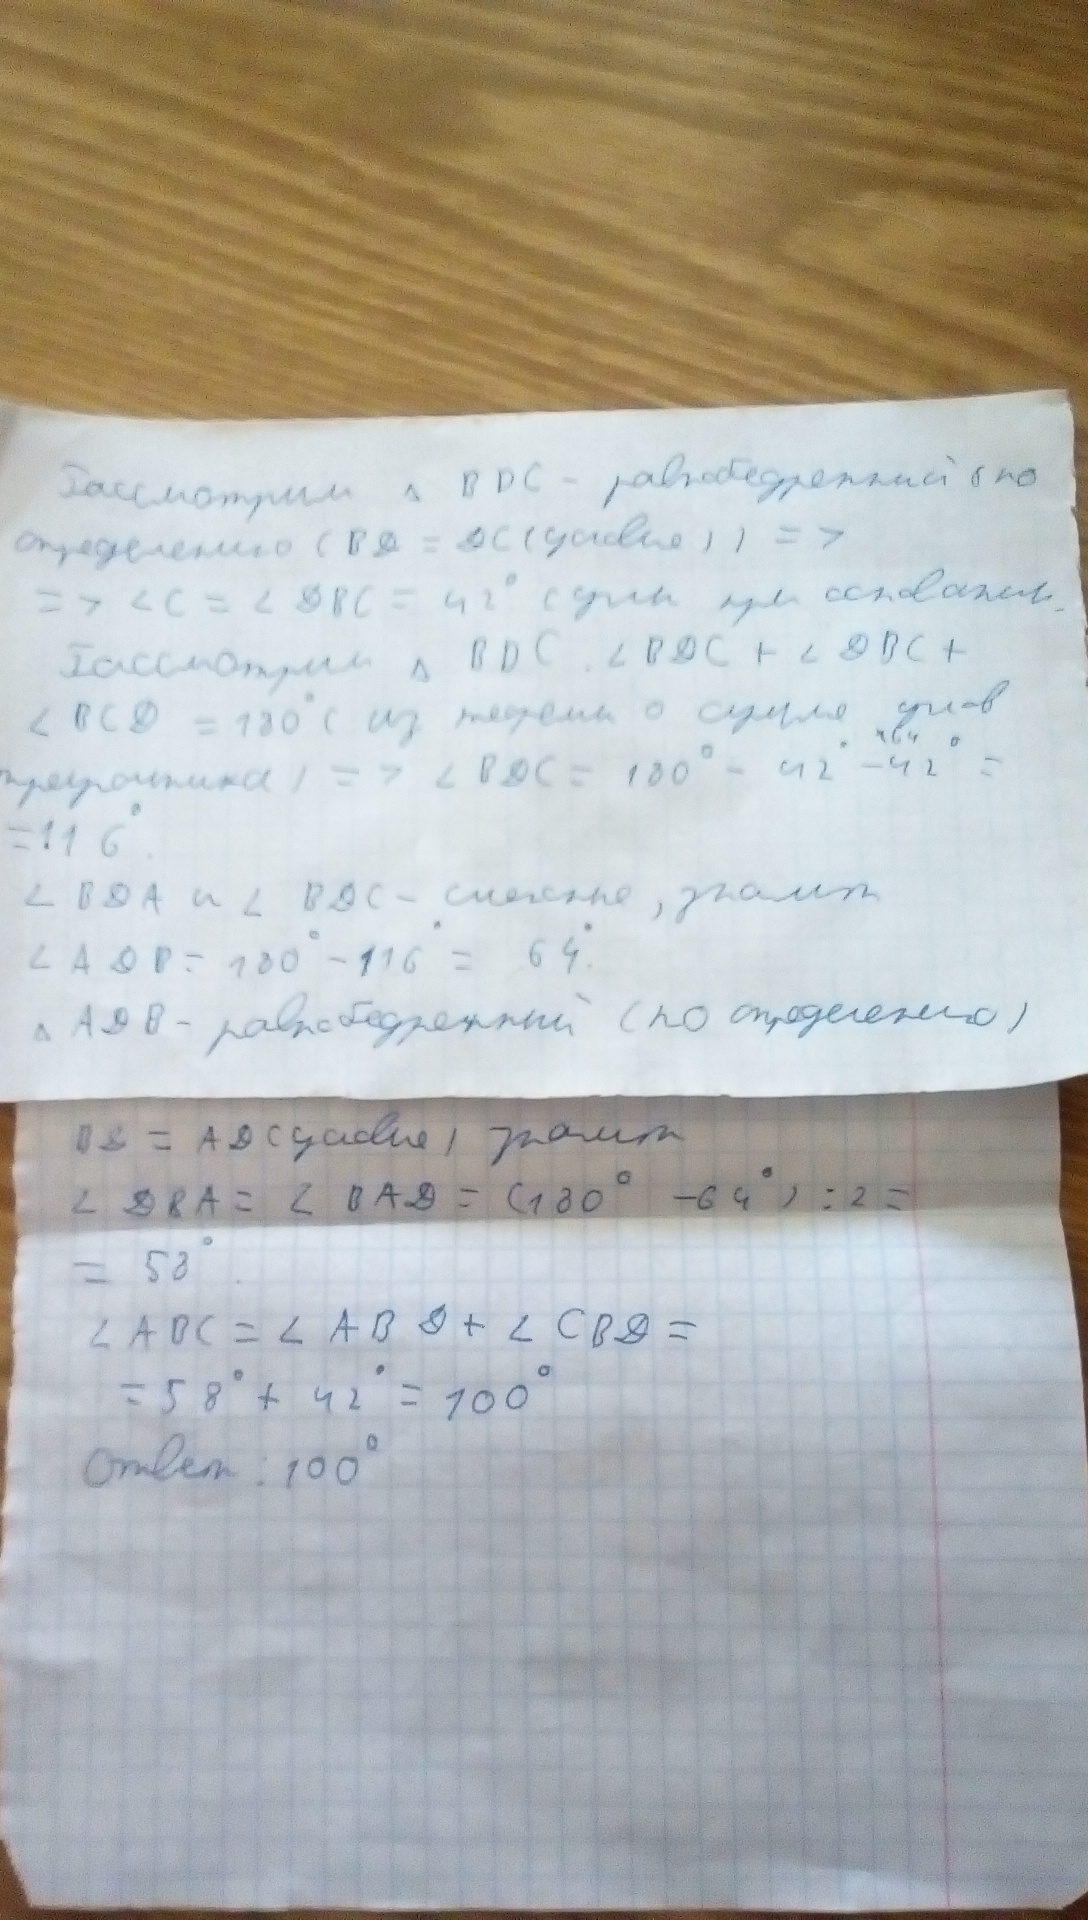 Рассмотрим △ BDC - равнобедренный (по
определению (BD = DC (условие)) =>
=> ∠C = ∠DBC = 42° (углы при основании.
Рассмотрим △ BDC. ∠BDC + ∠DBC +
∠BCD = 180° (из теоремы о сумме углов
треугольника) => ∠BDC = 180° - 42° - 42° =
= 116°.
∠BDA и ∠BDC - смежные, значит
∠ADB = 180° - 116° = 64°.
△ ADB - равнобедренный (по определению)
BD = AD (условие) значит
∠DBA = ∠BAD = (180° - 64°) : 2 =
= 58°.
∠ABC = ∠ABD + ∠CBD =
= 58° + 42° = 100°
Ответ: 100°